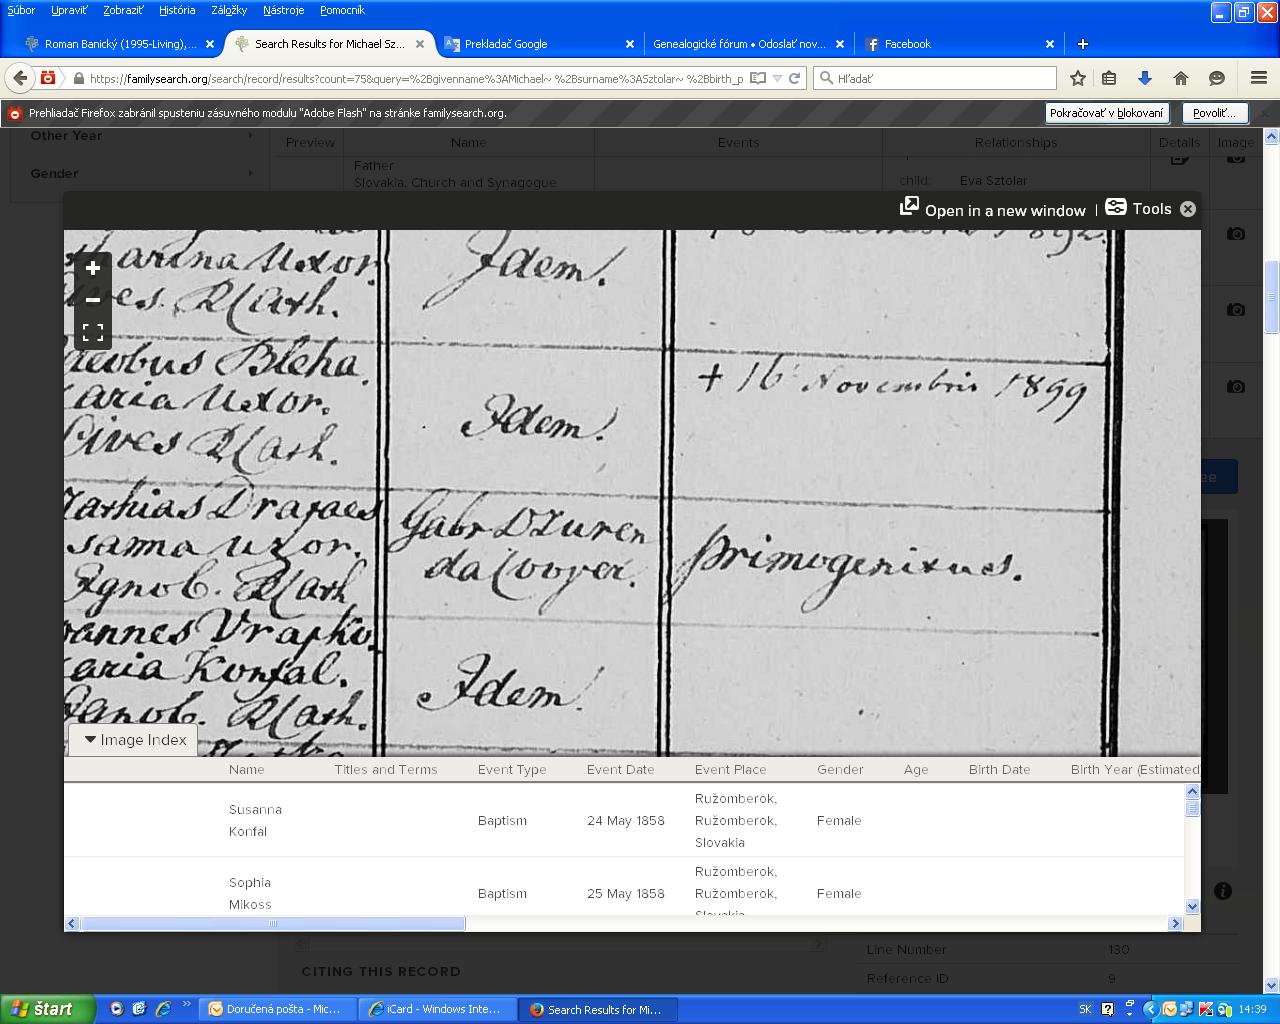 Súbor Upraviť Zobraziť História Záložky Nástroje Pomocník
Roman Banický (1995-Living),... Search Results for Michael Sz... Prekladač Google Genealogické fórum • Odoslať nov... Facebook
https://familysearch.org/search/record/results?count=75&query=%2Bgivenname%3AMichael~ %2Bsurname%3ASztolar~ %2Bbirth_p Hľadať
Prehliadač Firefox zabránil spusteniu zásuvného modulu "Adobe Flash" na stránke familysearch.org. Pokračovať v blokovaní Povoliť...
Other Year
Preview Name Events Relationships Details Image
Father
Gender
Slovakia, Church and Synagogue
child: Eva Sztolar
Open in a new window | Tools
1892.
tharina Uxor.
Idem.
Cives. Rkath.
Jacobus Bleha.
+ 16 Novembris 1899
Maria Uxor.
Idem.
Cives Rkath.
Mathias Drapaes
Gabr Dzuren
Susanna Uxor.
da Cooper.
primogenitus.
Ignob. Rkath
Joannes Vrapko.
Maria Konfal.
Idem.
Ignob. Rkath.
Image Index
Name Titles and Terms Event Type Event Date Event Place Gender Age Birth Date Birth Year (Estimated)
Susanna Konfal Baptism 24 May 1858 Ružomberok, Ružomberok, Slovakia Female
Sophia Mikoss Baptism 25 May 1858 Ružomberok, Ružomberok, Slovakia Female
Line Number 130
CITING THIS RECORD
Reference ID 9
štart Doručená pošta - Mic... iCard - Windows Inte... Search Results for Mi... SK 14:39